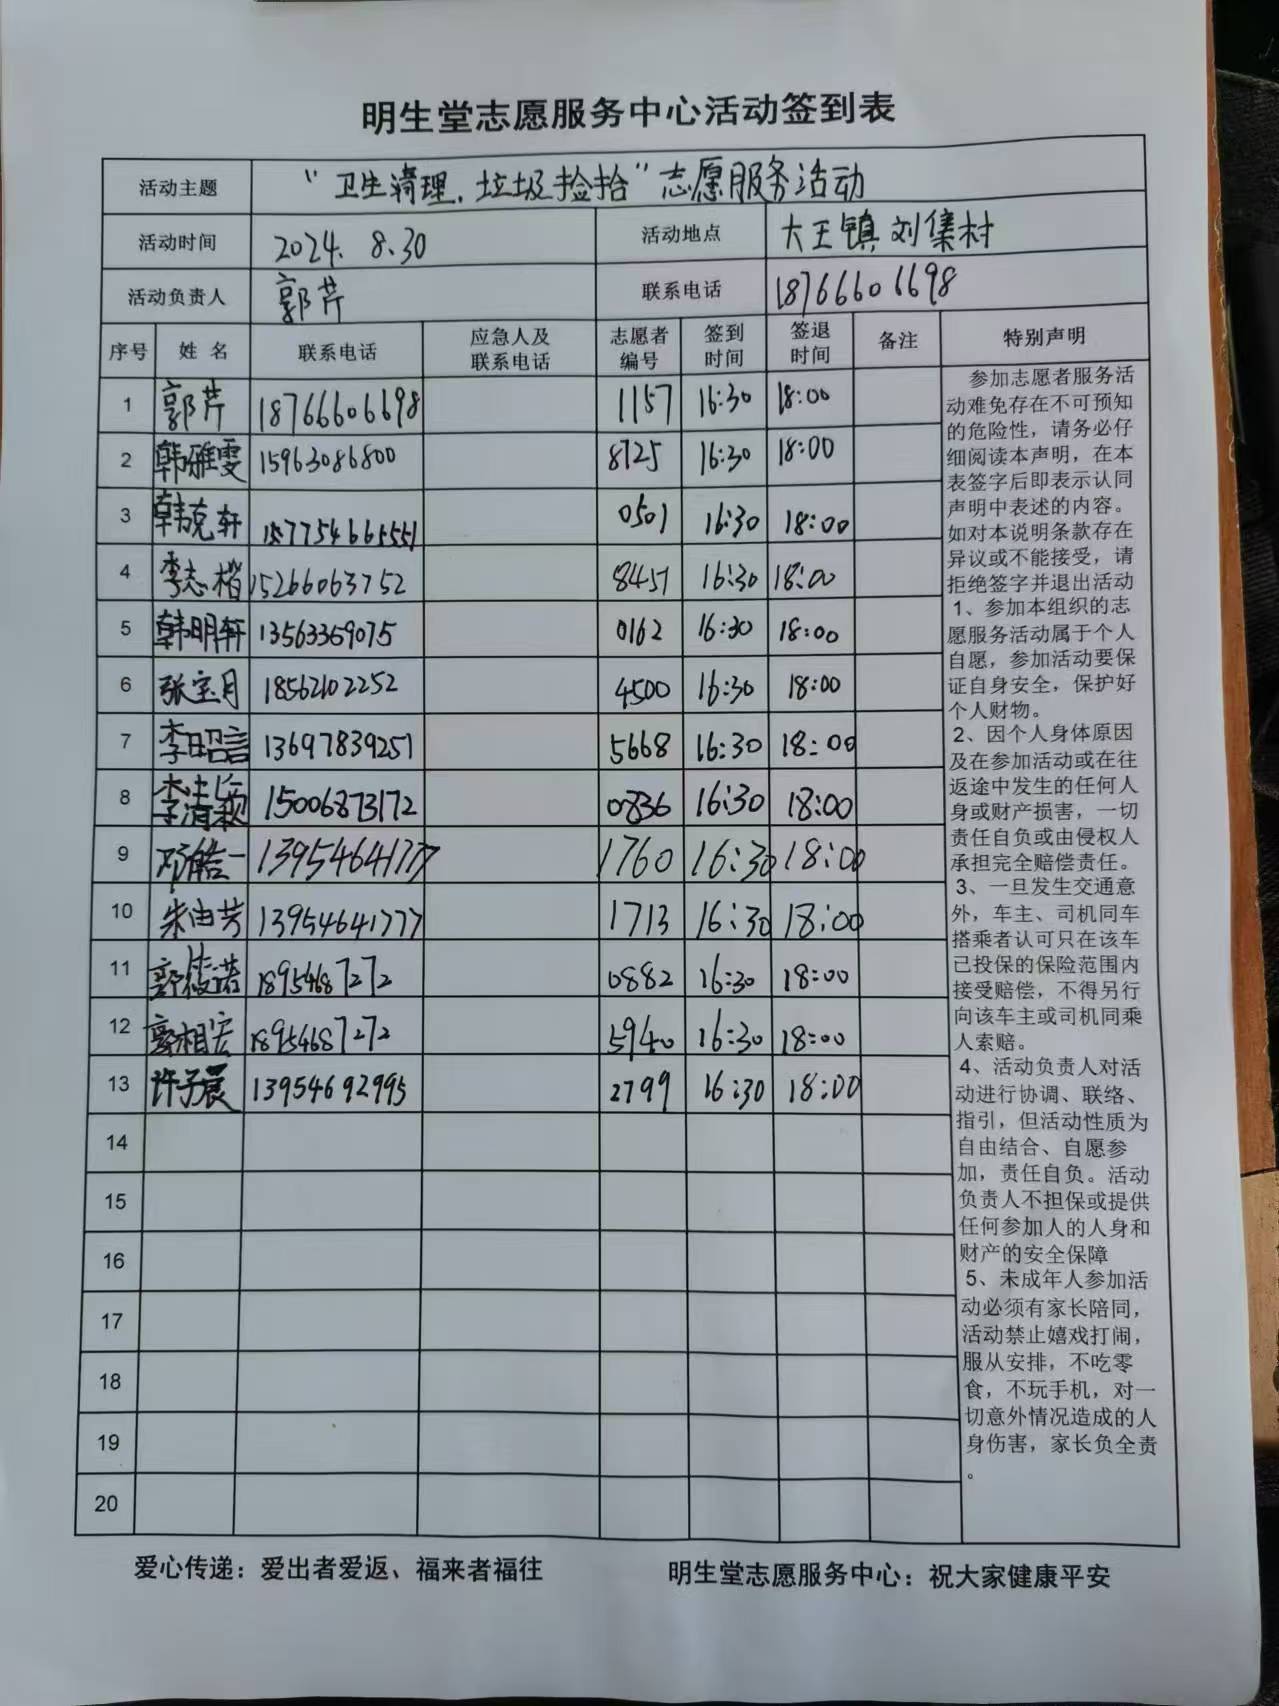 明生堂志愿服务中心活动签到表
活动主题 “卫生清理、垃圾捡拾”志愿服务活动
活动时间 2024.8.30 活动地点 大王镇刘集村
活动负责人 郭芹 联系电话 18766606698
序号 姓名 联系电话 应急人及联系电话 志愿者编号 签到时间 签退时间 备注 特别声明
1 郭芹 18766606698 1157 16:30 18:00
2 韩雅雯 15963086800 8725 16:30 18:00
3 韩克轩 0501 16:30 18:00
4 李志楷 15266063752 8451 16:30 18:00
5 韩明轩 13563369075 0162 16:30 18:00
6 张宝月 18562102252 4500 16:30 18:00
7 李昭言 13697839251 5668 16:30 18:00
8 李清颖 15006873172 0836 16:30 18:00
9 邓皓一 13954641777 1760 16:30 18:00
10 朱由芳 13954641777 1713 16:30 18:00
11 郭俊诺 18954687272 0882 16:30 18:00
12 郭相宏 18954687272 5940 16:30 18:00
13 许子晨 13954692995 2799 16:30 18:00
14
15
16
17
18
19
20
参加志愿者服务活
动难免存在不可预知
的危险性，请务必仔
细阅读本声明，在本
表签字后即表示认同
声明中表述的内容。
如对本说明条款存在
异议或不能接受，请
拒绝签字并退出活动
1、参加本组织的志
愿服务活动属于个人
自愿，参加活动要保
证自身安全，保护好
个人财物。
2、因个人身体原因
及在参加活动或在往
返途中发生的任何人
身或财产损害，一切
责任自负或由侵权人
承担完全赔偿责任。
3、一旦发生交通意
外，车主、司机同车
搭乘者认可只在该车
已投保的保险范围内
接受赔偿，不得另行
向该车主或司机同乘
人索赔。
4、活动负责人对活
动进行协调、联络、
指引，但活动性质为
自由结合、自愿参
加，责任自负。活动
负责人不担保或提供
任何参加人的人身和
财产的安全保障
5、未成年人参加活
动必须有家长陪同，
活动禁止嬉戏打闹，
服从安排，不吃零
食，不玩手机，对一
切意外情况造成的人
身伤害，家长负全责
。
爱心传递：爱出者爱返、福来者福往 明生堂志愿服务中心：祝大家健康平安